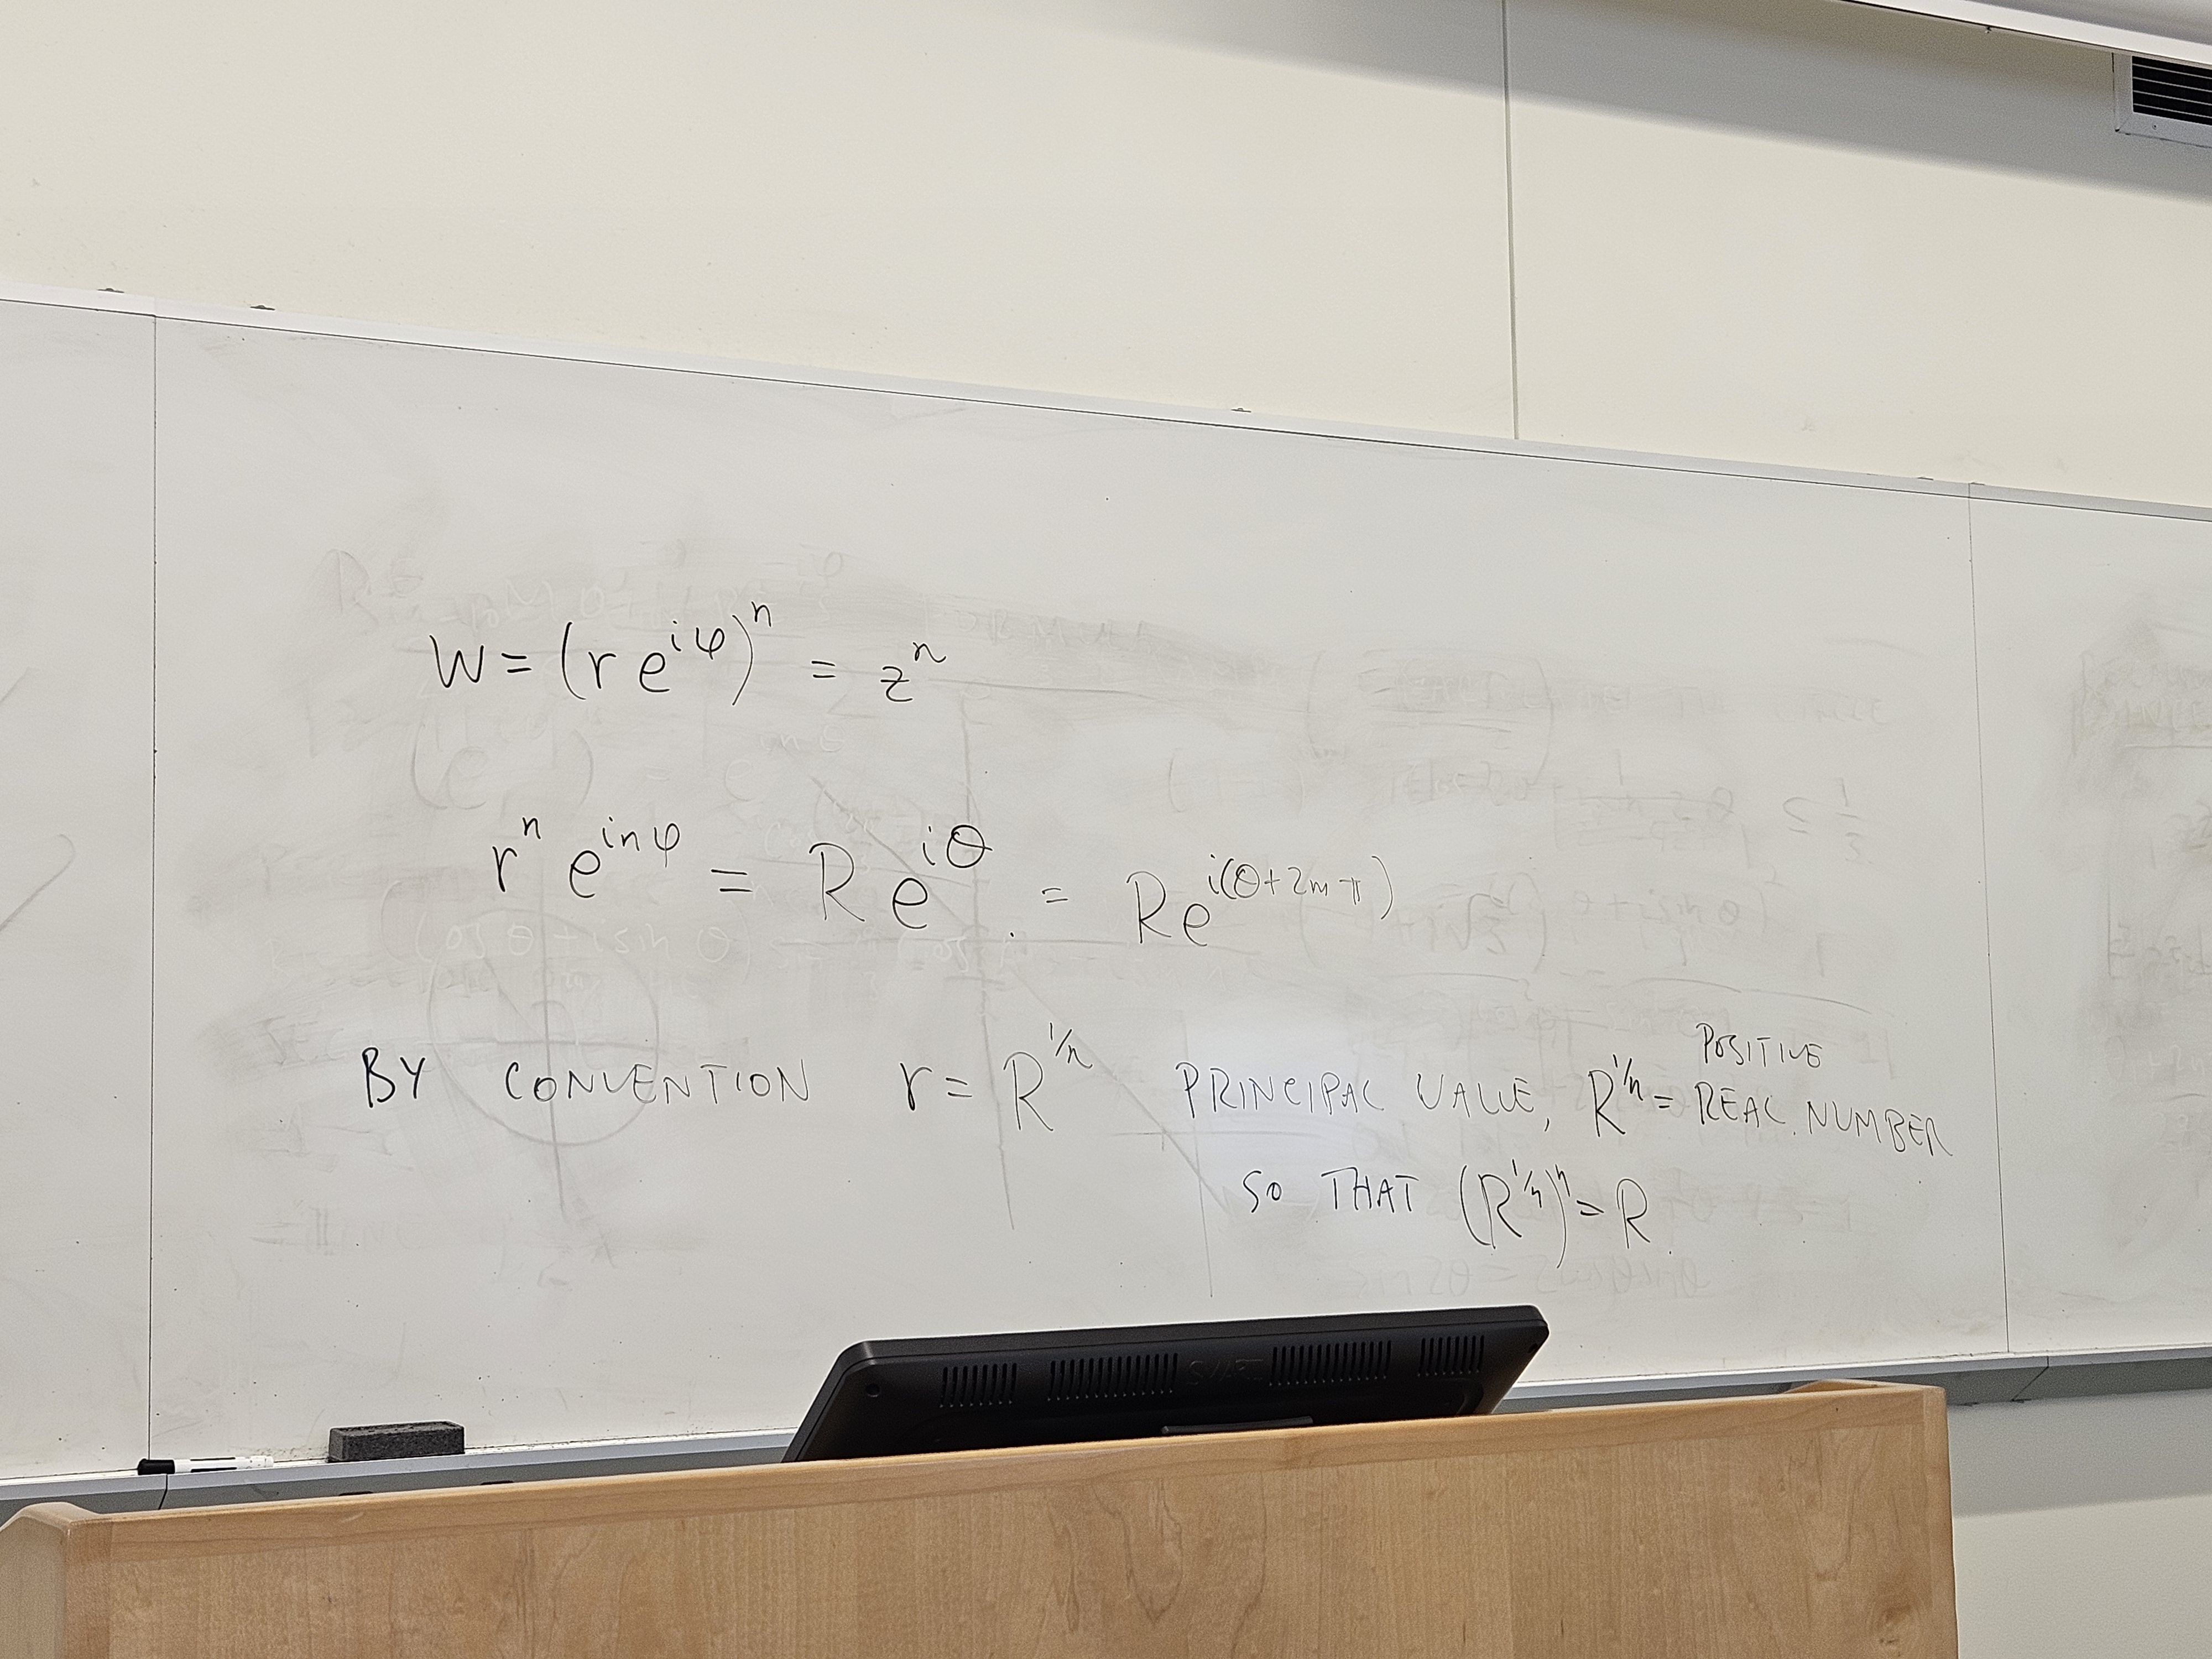 W = (r e^{iφ})^n = z^n
r^n e^{inφ} = R e^{iθ} = R e^{i(θ+2mπ)}
BY CONVENTION r = R^{1/n} PRINCIPAL VALUE, R^{1/n} = POSITIVE REAL NUMBER
SO THAT (R^{1/n})^n = R
SMART